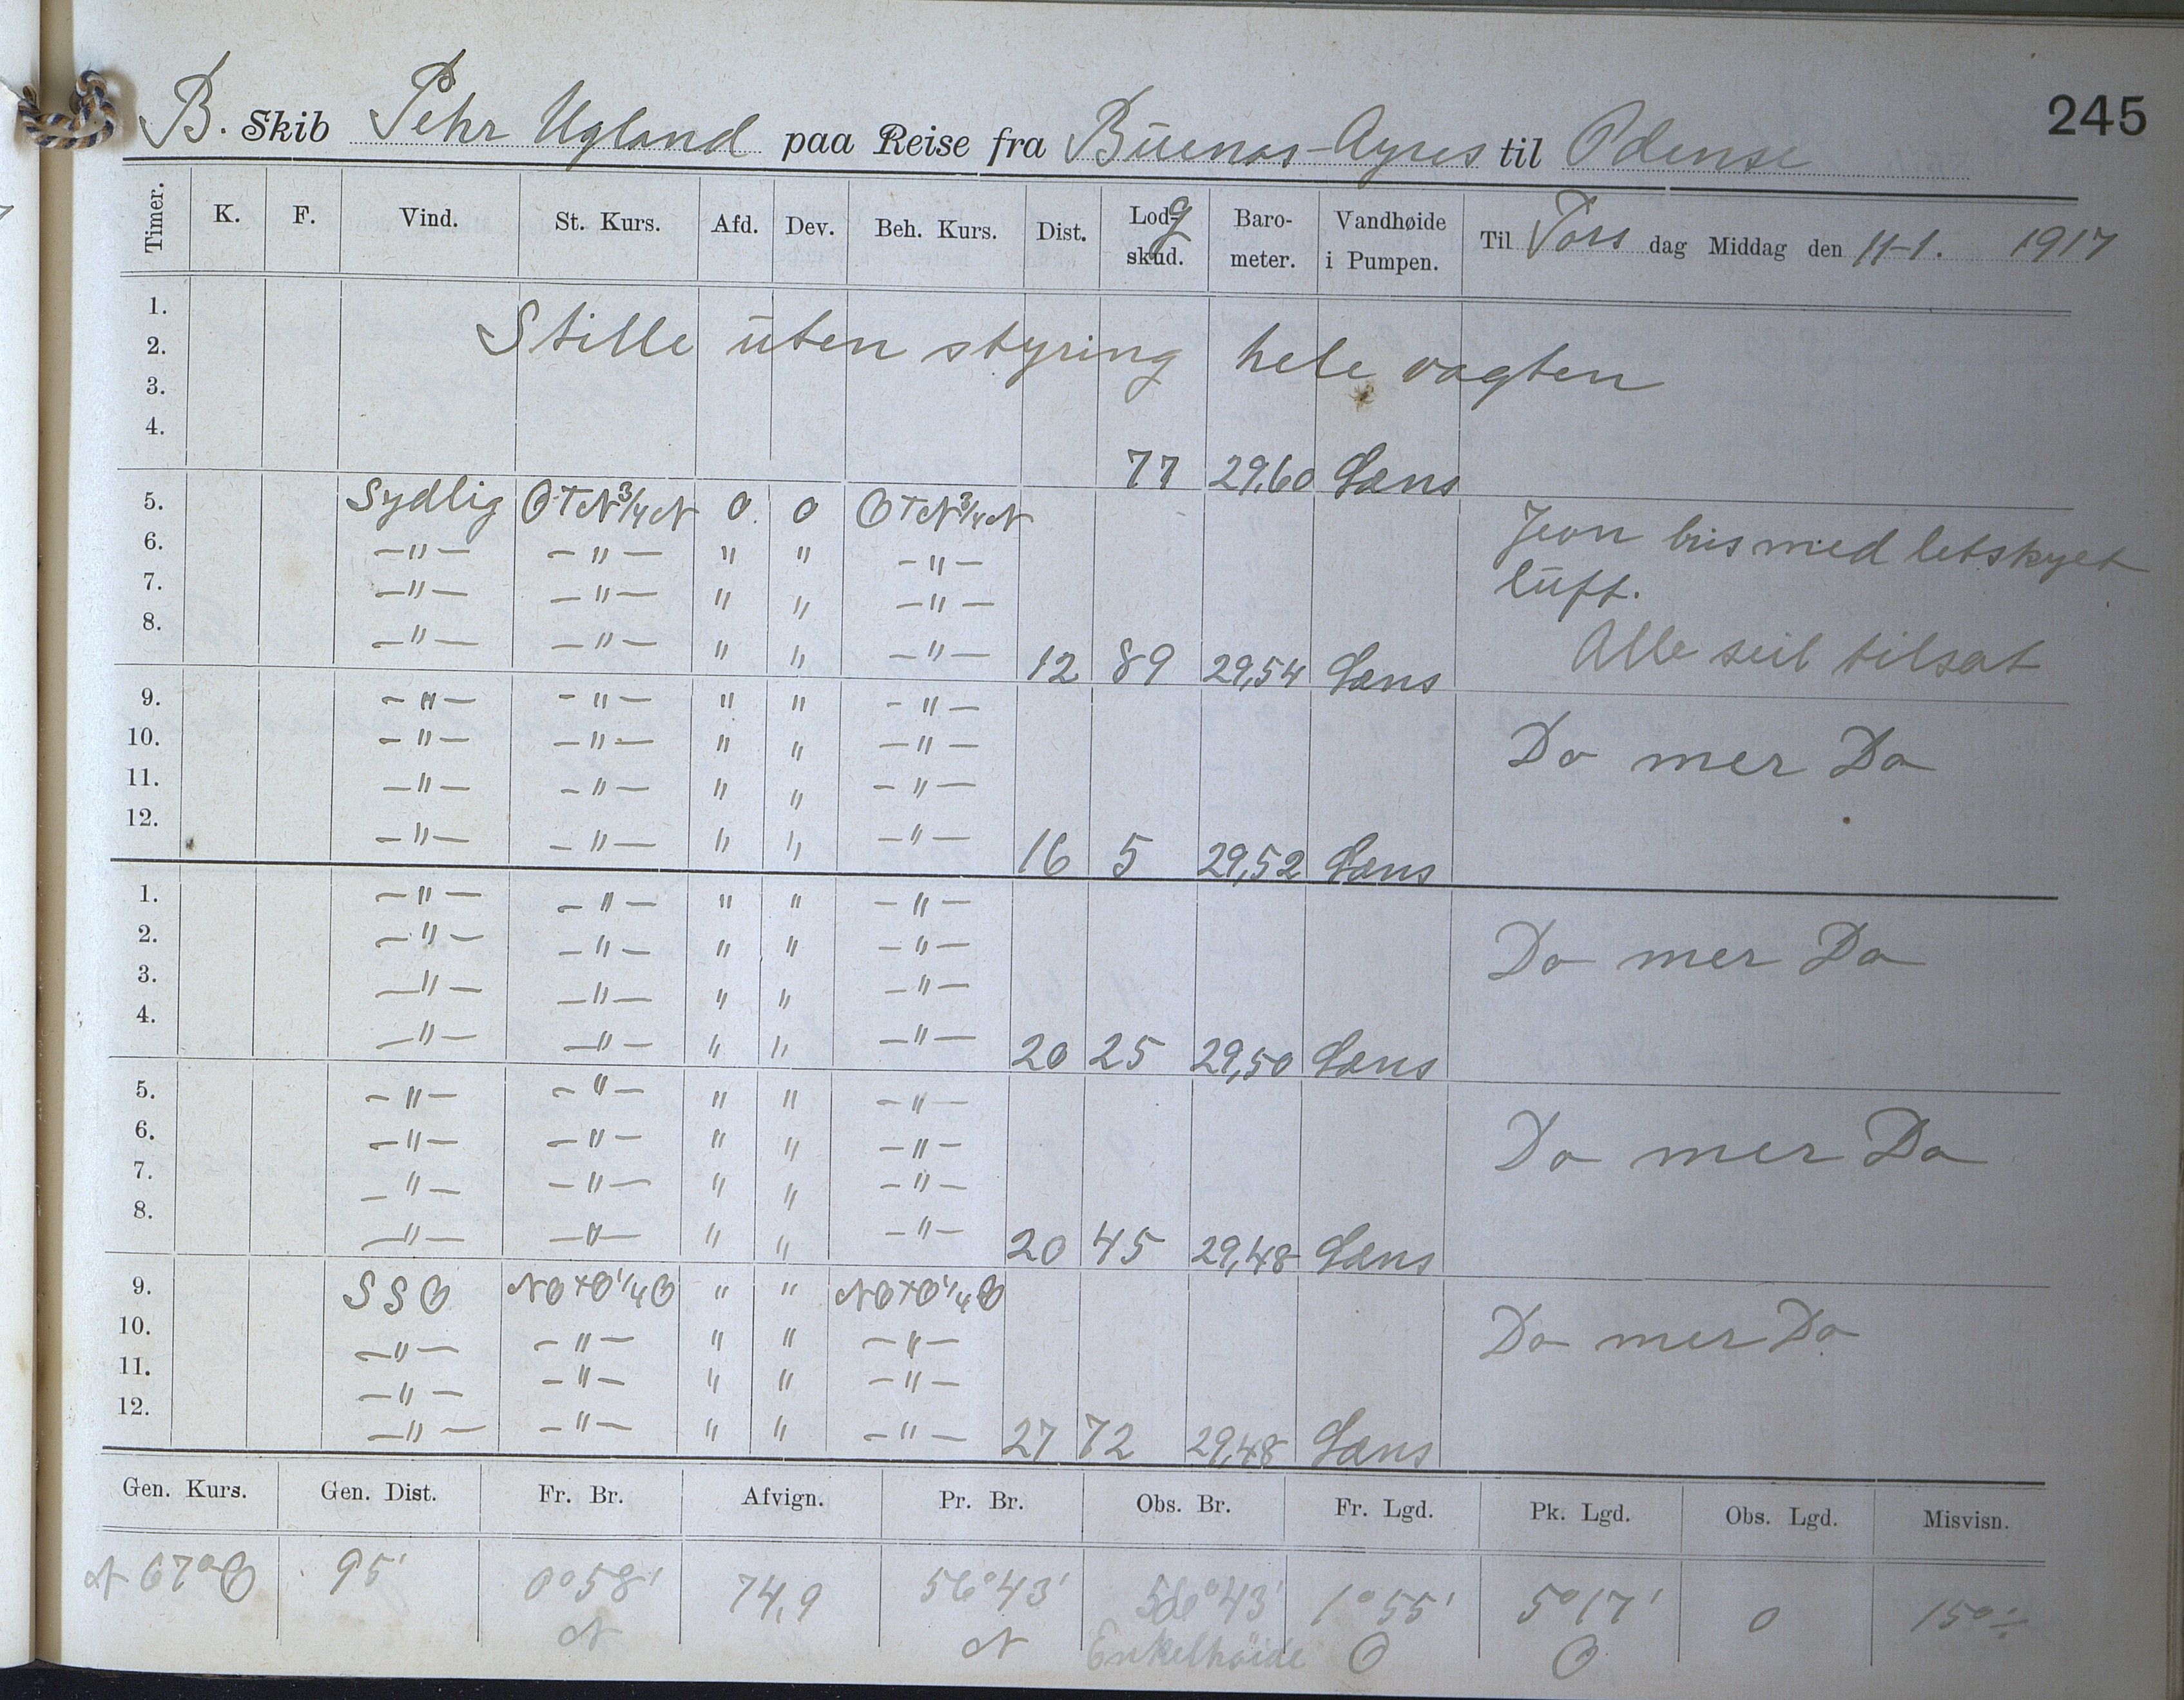 245
B. Skib Pehr Ugland paa Reise fra Buenos-Ayres til Odense
Timer. K. F. Vind. St. Kurs. Afd. Dev. Beh. Kurs. Dist. Logskud. Barometer. Vandhøide i Pumpen. Til Tors dag Middag den 11-1. 1917
1.
2. Stille uten styring hele vagten
3.
4. 77 29,60 Læns
5. Sydlig OTN¾N 0 0 OTN¾N Jevn bris med letskyet
6. -"- -"- " " -"- luft.
7. -"- -"- " " -"-
8. -"- -"- " " -"- 12 89 29,54 Læns Alle seil tilsat
9. -"- -"- " " -"-
10. -"- -"- " " -"- Do mer Do
11. -"- -"- " " -"-
12. -"- -"- " " -"- 16 5 29,52 Læns
1. -"- -"- " " -"-
2. -"- -"- " " -"- Do mer Do
3. -"- -"- " " -"-
4. -"- -"- " " -"- 20 25 29,50 Læns
5. -"- -"- " " -"-
6. -"- -"- " " -"- Do mer Do
7. -"- -"- " " -"-
8. -"- -"- " " -"- 20 45 29,48 Læns
9. SSO NOTO¼O " " NOTO¼O
10. -"- -"- " " -"- Do mer Do
11. -"- -"- " " -"-
12. -"- -"- " " -"- 27 72 29,48 Læns
Gen. Kurs. Gen. Dist. Fr. Br. Afvign. Pr. Br. Obs. Br. Fr. Lgd. Pk. Lgd. Obs. Lgd. Misvisn.
N 67° O 95' 0°58' 74,9 56°43' 56°43' 1°55' 5°17' 0 15°÷
N N Enkelhøide O O